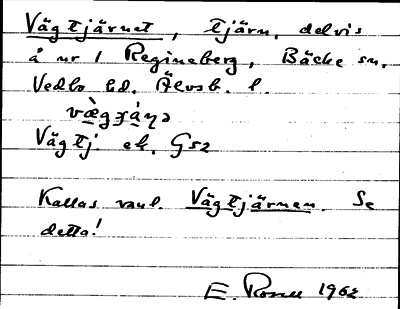 Vägtjärnet, tjärn, delvis
å nr 1 Regineberg, Bäcke sn,
Vedbo hd. Älvsb. l.
Vägtj. ek. G52
Kallas vanl. Vägtjärnen. Se
detta!
E. 1962